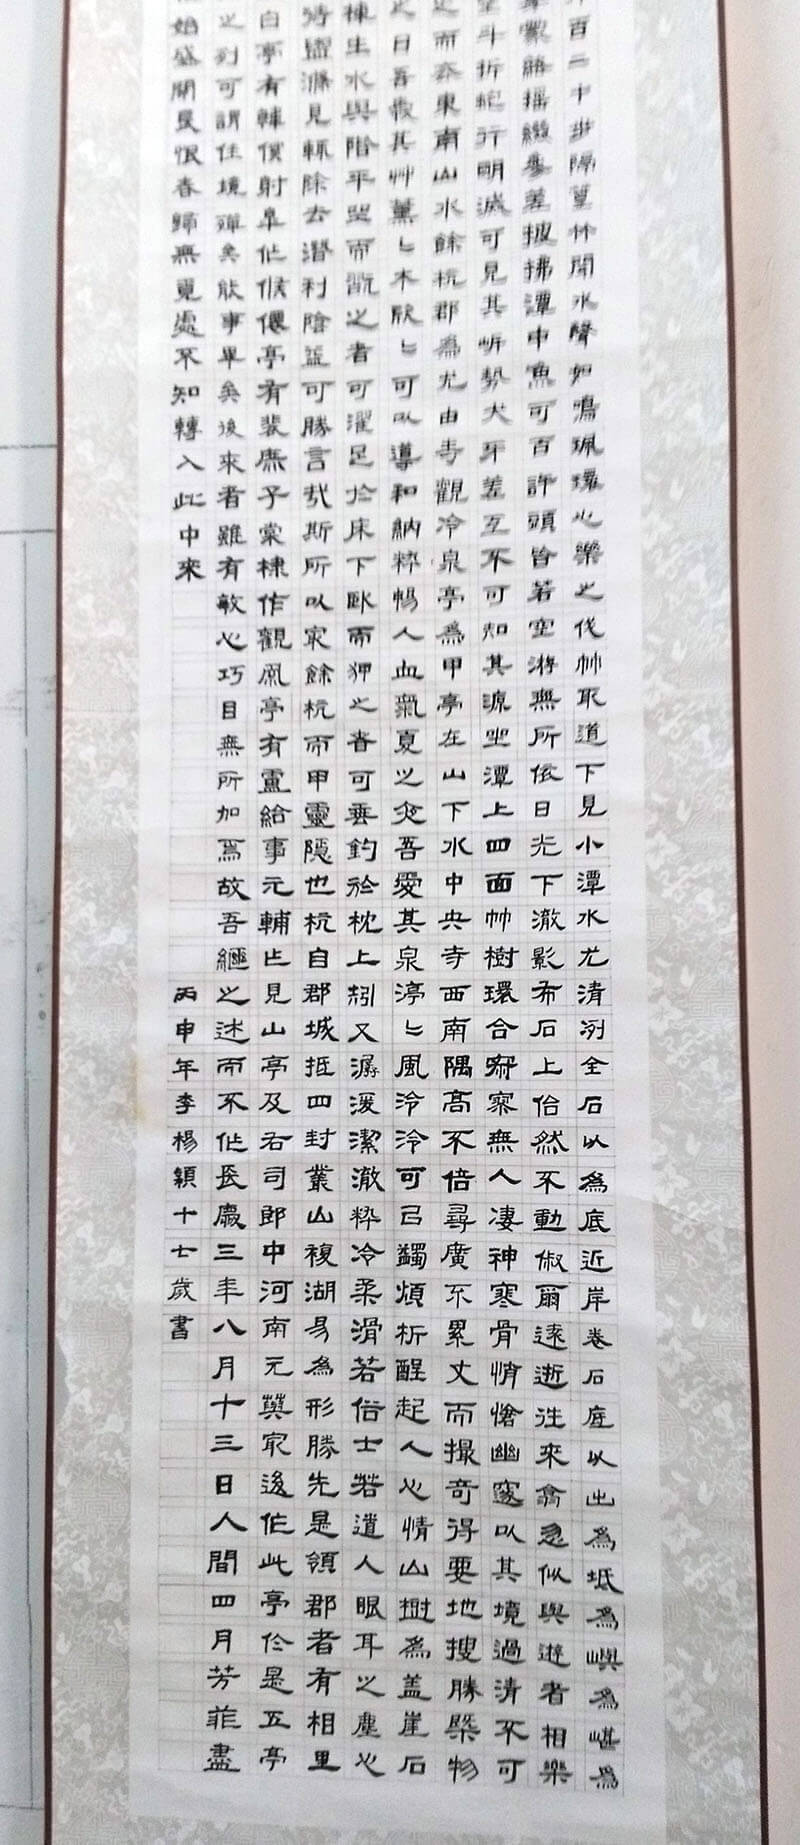 百二十步隔篁竹聞水聲如鳴珮環心樂之伐竹取道下見小潭水尤清冽全石以為底近岸卷石底以出為坻為嶼為嵁為
蒙絡搖綴參差披拂潭中魚可百許頭皆若空游無所依日光下澈影布石上佁然不動俶爾遠逝往來翕忽似與遊者相樂
斗折蛇行明滅可見其岸勢犬牙差互不可知其源坐潭上四面竹樹環合寂寥無人凄神寒骨悄愴幽邃以其境過清不可
之而去東南山水餘杭郡為尤由寺觀冷泉亭為甲亭在山下水中央寺西南隅高不倍尋廣不累丈而撮奇得要地搜勝槩物
之日吾愛其艸薰々木欣々可以導和納粹暢人血氣夏之夜吾愛其泉渟々風泠泠可以蠲煩析酲起人心情山樹為蓋崖石
棟生水與階平坐而翫之者可濯足於床下臥而狎之者可垂釣於枕上矧又潺湲潔澈粹冷柔滑若俗士若道人眼耳之塵心
待盥滌見輒除去潛利陰益可勝言哉斯所以最餘杭而甲靈隱也杭自郡城抵四封叢山複湖易為形勝先是領郡者有相里
白亭有韓僕射皋作候僊亭有裴庶子棠棣作觀風亭有盧給事元輔作見山亭及右司郎中河南元藇最後作此亭於是五亭
之列可謂佳境殫矣能事畢矣後來者雖有敏心巧目無所加焉故吾繼之述而不作長慶三年八月十三日人間四月芳菲盡
始盛開長恨春歸無覓處不知轉入此中來 丙申年李楊穎十七歲書